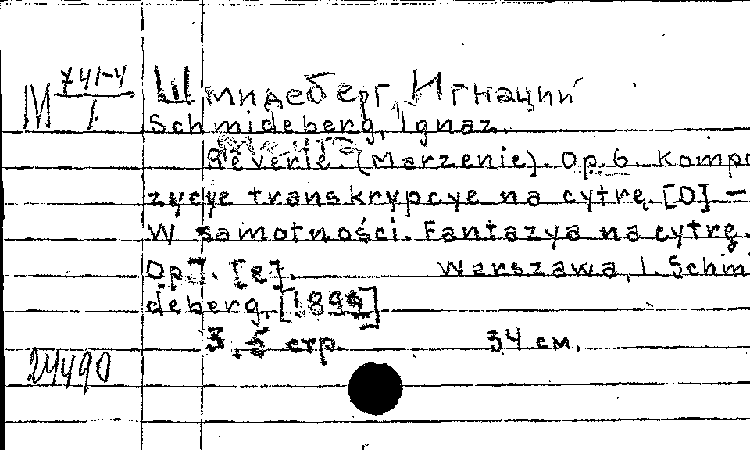 М 741-4/1
Шмидеберг, Игнаций
Schmideberg, Ignaz.
Reverie. (Marzenie). Op. 6. Kompo
zycye transkrypcye na cytrę. [D] —
W samotności. Fantazya na cytrę.
Op. [e]. Warszawa, I. Schmi
deberg, [1894]
3, 5 стр. 34 см.
24490